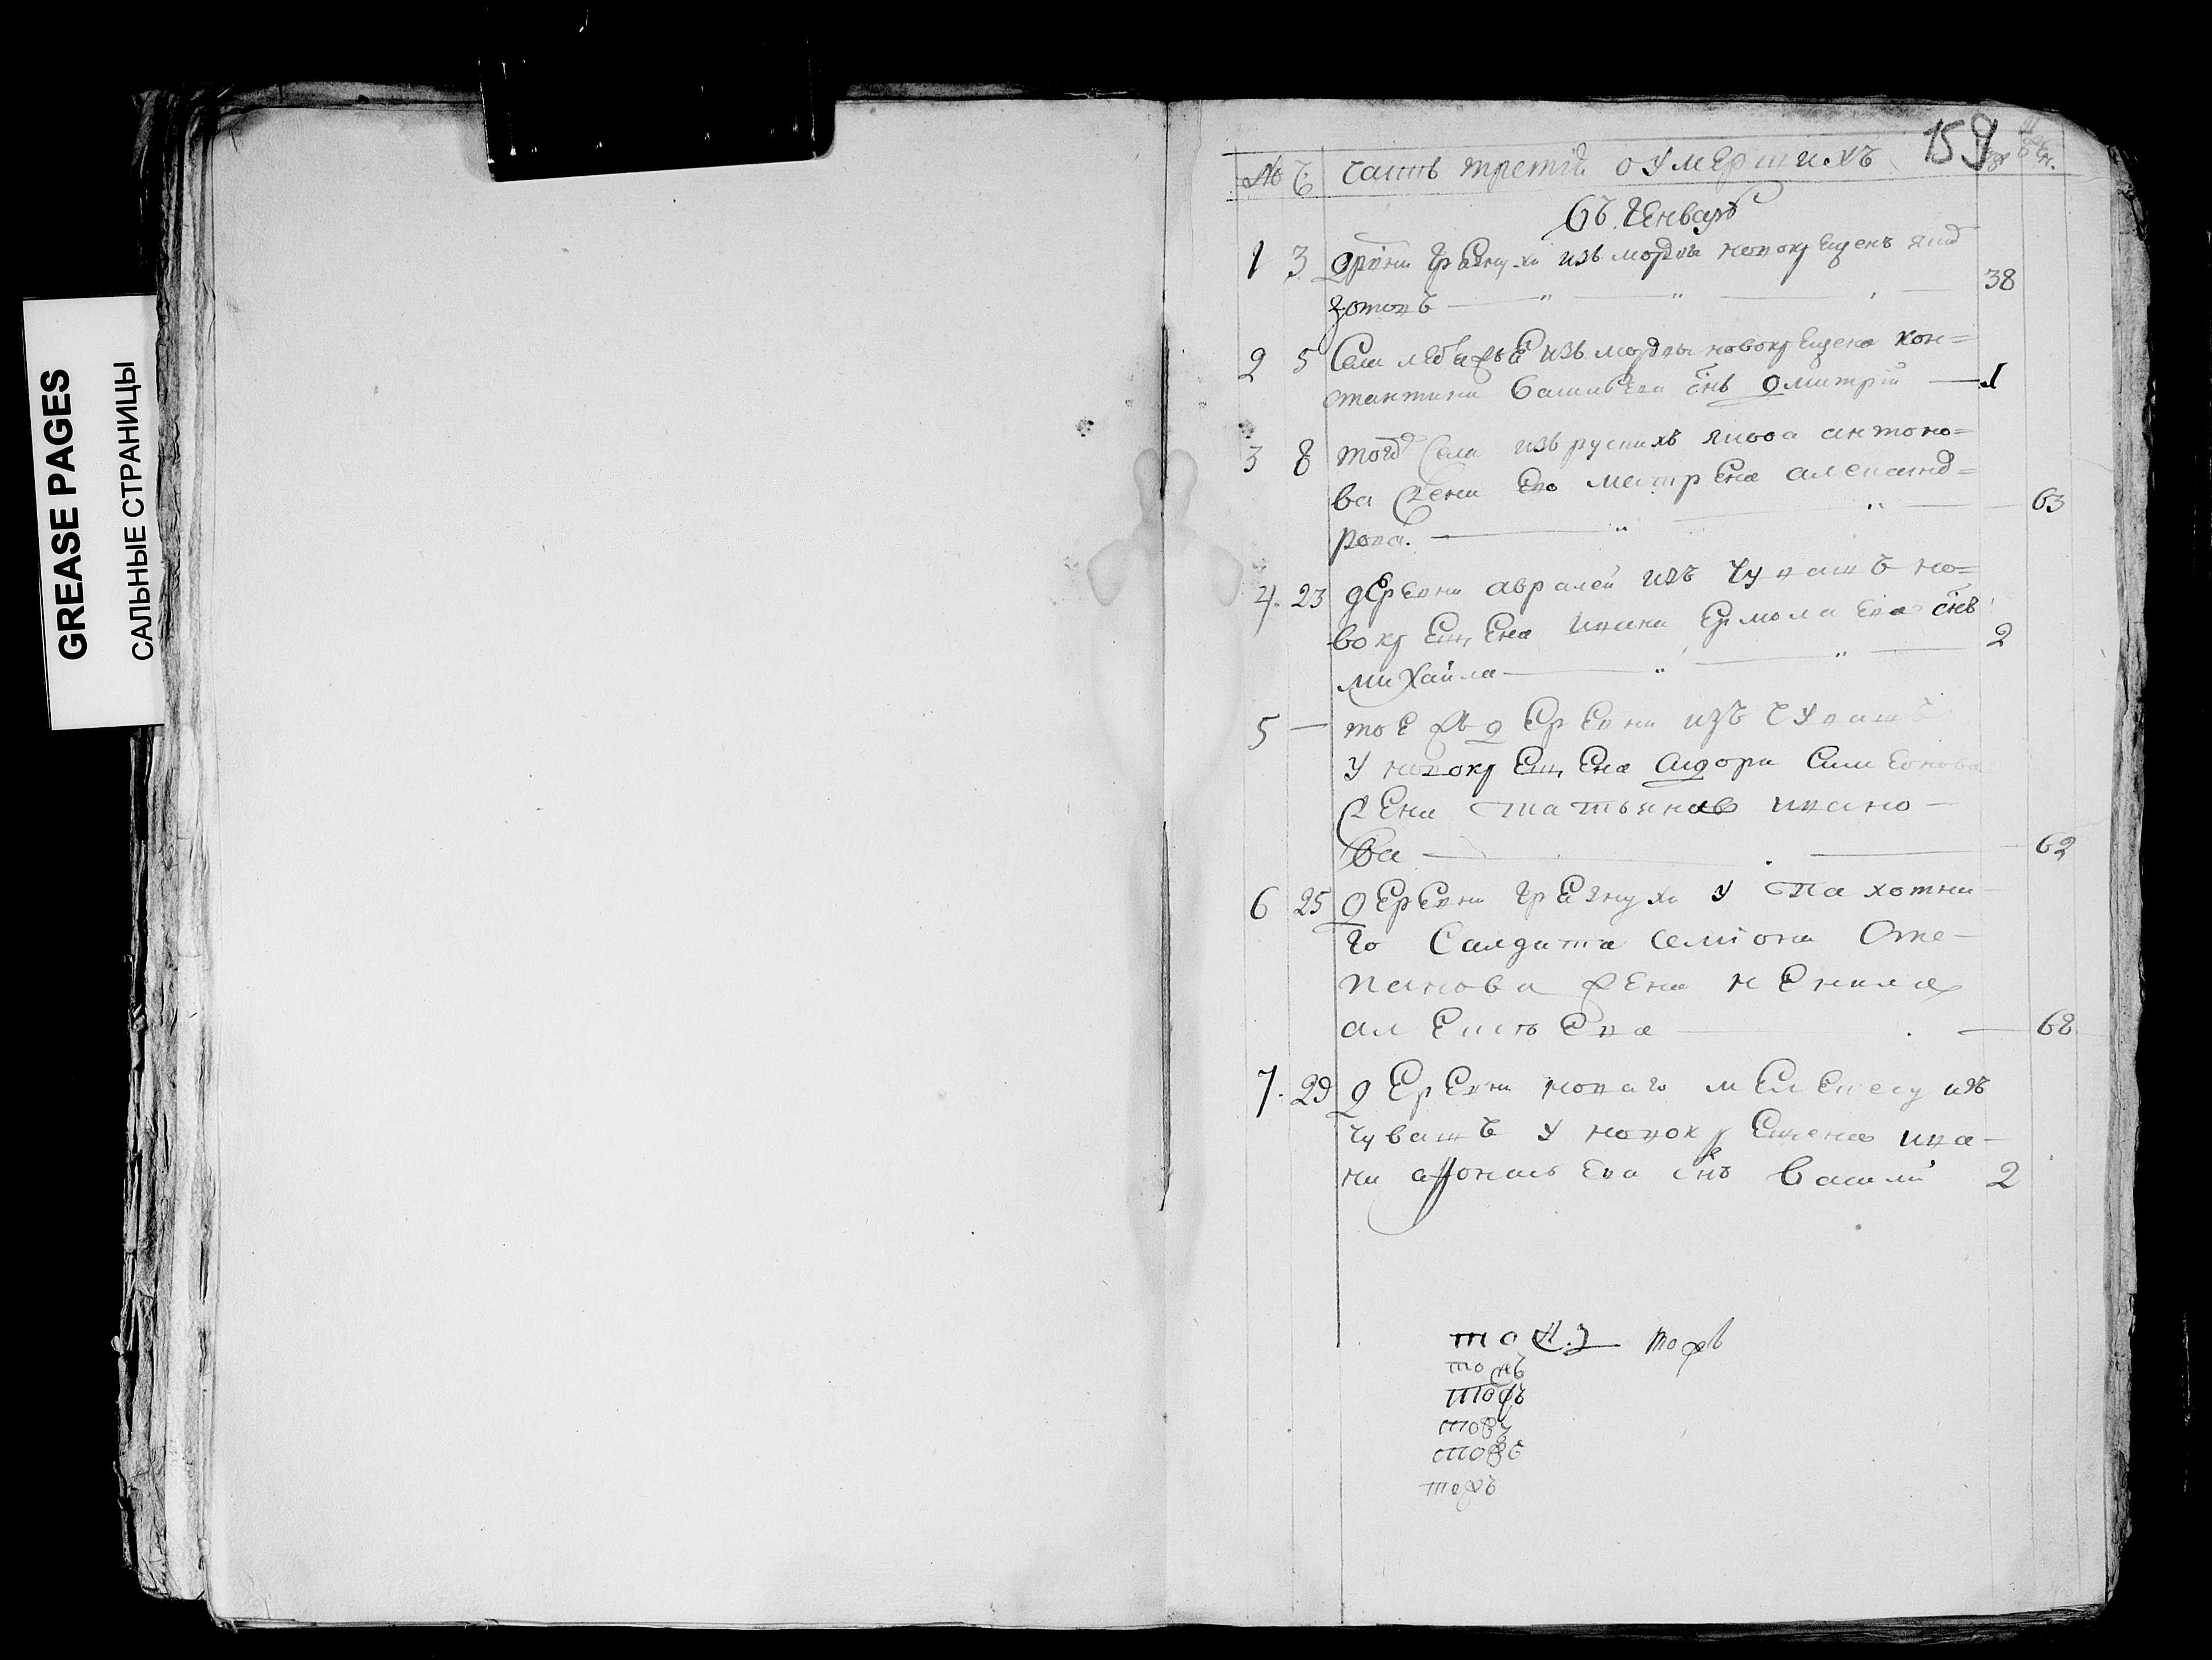 GREASE PAGES
САЛЬНЫЕ СТРАНИЦЫ
159
№ Ч. часть третiя о умершихъ
въ генваре
1 3 Дрвни Грязнухи изъ мордвы новокрещенъ
Зотовъ 38
2 5 Села из мордвы новокрещена Кон=
стантина Васильева снъ Дмитрiй 1
3 8 того села изъ руских Якова Антоно=
ва жена ево Матрена Александ=
рова. 63
4. 23 деревни Авралей изъ чувашъ но=
вокрещена Ивана Ермолаева снъ
Михайла 2
5 — тое жъ деревни изъ чувашъ
у новокрещена Сидора Симеонова
жена Татьяна Ивано-
ва 62
6 25 деревни Грязнухи у пахотна-
го салдата Семiона Сте-
панова жена Ненила
Алексъева 68
7. 29 деревни Новаго Мелекесу изъ
чувашъ у новокрещена Ива-
на Афонасьева снъ Василий 2
тожъ
тожъ
тожъ
тожъ
тожъ
тожъ